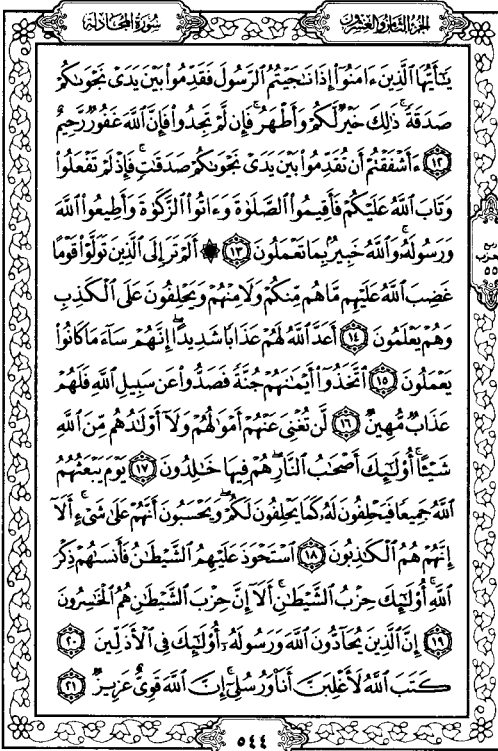 الجزء الثامن والعشرون
سورة المجادلة
يَـٰٓأَيُّهَا ٱلَّذِينَ ءَامَنُوٓا۟ إِذَا نَـٰجَيْتُمُ ٱلرَّسُولَ فَقَدِّمُوا۟ بَيْنَ يَدَىْ نَجْوَىٰكُمْ
صَدَقَةً ۚ ذَٰلِكَ خَيْرٌ لَّكُمْ وَأَطْهَرُ ۚ فَإِن لَّمْ تَجِدُوا۟ فَإِنَّ ٱللَّهَ غَفُورٌ رَّحِيمٌ
﴿١٢﴾ ءَأَشْفَقْتُمْ أَن تُقَدِّمُوا۟ بَيْنَ يَدَىْ نَجْوَىٰكُمْ صَدَقَـٰتٍ ۚ فَإِذْ لَمْ تَفْعَلُوا۟
وَتَابَ ٱللَّهُ عَلَيْكُمْ فَأَقِيمُوا۟ ٱلصَّلَوٰةَ وَءَاتُوا۟ ٱلزَّكَوٰةَ وَأَطِيعُوا۟ ٱللَّهَ
وَرَسُولَهُۥ ۚ وَٱللَّهُ خَبِيرٌۢ بِمَا تَعْمَلُونَ ﴿١٣﴾ ۞ أَلَمْ تَرَ إِلَى ٱلَّذِينَ تَوَلَّوْا۟ قَوْمًا
ربع
حزب
٥٥
غَضِبَ ٱللَّهُ عَلَيْهِم مَّا هُم مِّنكُمْ وَلَا مِنْهُمْ وَيَحْلِفُونَ عَلَى ٱلْكَذِبِ
وَهُمْ يَعْلَمُونَ ﴿١٤﴾ أَعَدَّ ٱللَّهُ لَهُمْ عَذَابًا شَدِيدًا ۖ إِنَّهُمْ سَآءَ مَا كَانُوا۟
يَعْمَلُونَ ﴿١٥﴾ ٱتَّخَذُوٓا۟ أَيْمَـٰنَهُمْ جُنَّةً فَصَدُّوا۟ عَن سَبِيلِ ٱللَّهِ فَلَهُمْ
عَذَابٌ مُّهِينٌ ﴿١٦﴾ لَّن تُغْنِىَ عَنْهُمْ أَمْوَٰلُهُمْ وَلَآ أَوْلَـٰدُهُم مِّنَ ٱللَّهِ
شَيْـًٔا ۚ أُو۟لَـٰٓئِكَ أَصْحَـٰبُ ٱلنَّارِ ۖ هُمْ فِيهَا خَـٰلِدُونَ ﴿١٧﴾ يَوْمَ يَبْعَثُهُمُ
ٱللَّهُ جَمِيعًا فَيَحْلِفُونَ لَهُۥ كَمَا يَحْلِفُونَ لَكُمْ ۖ وَيَحْسَبُونَ أَنَّهُمْ عَلَىٰ شَىْءٍ ۚ أَلَآ
إِنَّهُمْ هُمُ ٱلْكَـٰذِبُونَ ﴿١٨﴾ ٱسْتَحْوَذَ عَلَيْهِمُ ٱلشَّيْطَـٰنُ فَأَنسَىٰهُمْ ذِكْرَ
ٱللَّهِ ۚ أُو۟لَـٰٓئِكَ حِزْبُ ٱلشَّيْطَـٰنِ ۚ أَلَآ إِنَّ حِزْبَ ٱلشَّيْطَـٰنِ هُمُ ٱلْخَـٰسِرُونَ
﴿١٩﴾ إِنَّ ٱلَّذِينَ يُحَآدُّونَ ٱللَّهَ وَرَسُولَهُۥٓ أُو۟لَـٰٓئِكَ فِى ٱلْأَذَلِّينَ ﴿٢٠﴾
كَتَبَ ٱللَّهُ لَأَغْلِبَنَّ أَنَا۠ وَرُسُلِىٓ ۚ إِنَّ ٱللَّهَ قَوِىٌّ عَزِيزٌ ﴿٢١﴾
٥٤٤